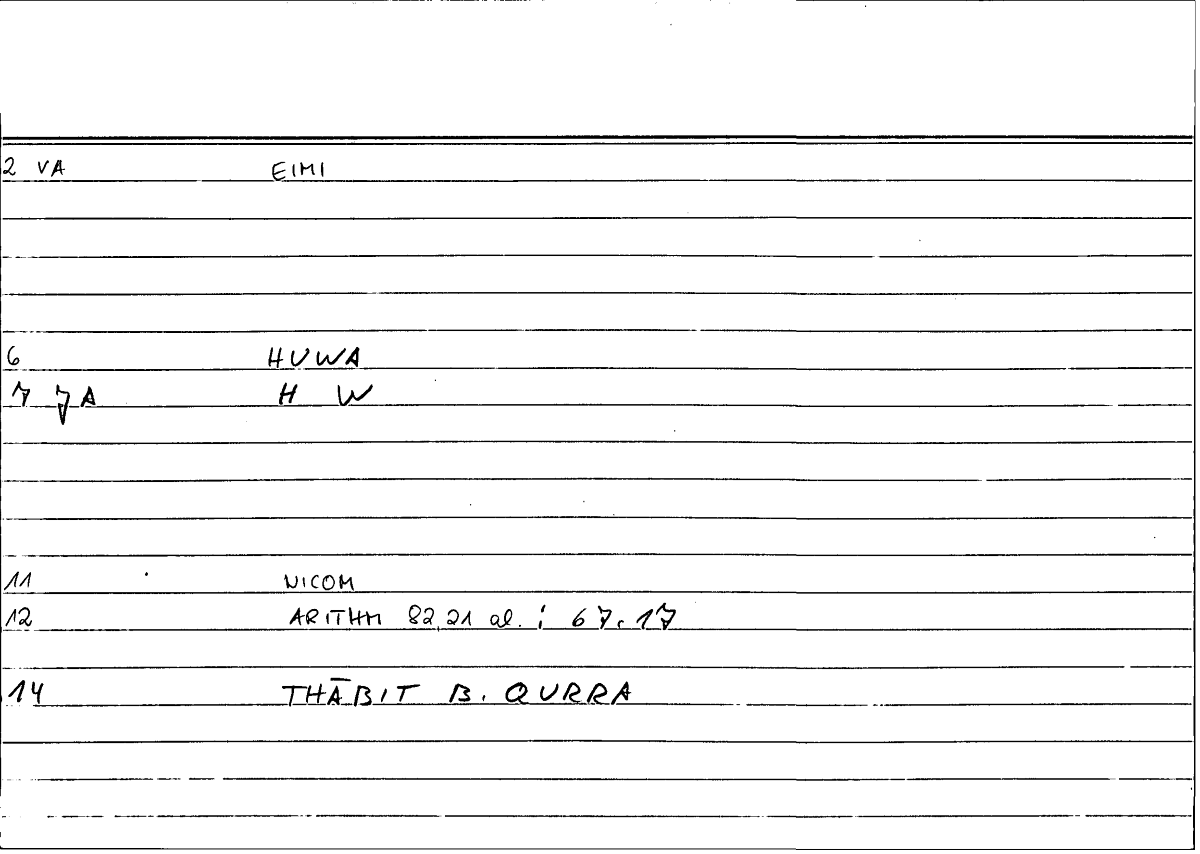 2 VA EIMI
6 HUWA
7 7A H W
11 NICOM
12 ARITHM 82,21 al. : 67,17
14 THĀBIT B. QURRA